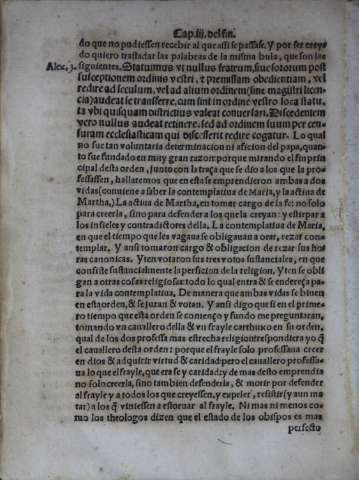 Cap.iij. del fin.
do que no pudiessen recebir al que assi se passasse. Y por ser creydo
do quiero trasladar las palabras de la misma bula, que son las
Alex. 3. siguientes. Statuimus vt nullus fratrum, siue sororum post
susceptionem ordinis vestri, & præmissam obedientiam, vel
redire ad seculum, vel ad alium ordinem (sine magistri licen
cia) audeat se transferre, cum sint in ordine vestro loca statu
ta vbi quisquam districtius valeat conuersari. Discedentem
vero nullus audeat retinere, sed ad ordinem suum per cen
suram ecclesiasticam qui discesserit redire cogatur. Lo qual
no fue tan voluntaria determinacion ni aficion del papa, quanto
fue fundado en muy gran razon: porque mirando el fin prin
cipal desta orden, junto con la traça que se dio a los que la pro
fessassen, hallaremos que en esta se emprendieron ambas a dos
vidas (conuiene a saber la contemplatiua de Maria, y la actiua de
Martha,) La actiua de Martha, en tomar cargo de la fe: no solo
para creerla, sino para defender a los que la creyan: y estirpar a
los infieles y contradictores della. La contemplatiua de Maria,
en que el tiempo que les vagaua se obligauan a orar, rezar con
templar. Y ansi tomaron cargo & obligacion de rezar sus ho
ras canonicas. Y ten votaron sus tres votos sustanciales, en que
consiste sustancialmente la perficion de la religion. Y ten se obli
gan a otras cosas religiosas: todo lo qual entra & se endereça pa
ra la vida contemplatiua. De manera que ambas vidas se biuen
en esta orden, & se juran & votan. Y ansi digo que si en el prime
ro tiempo que esta orden se começo y fundo me preguntaran,
tomando vn cauallero della & vn frayle carthuxo en su orden,
qual de los dos professa mas estrecha religion respondiera yo q̃
el cauallero desta orden: porque el frayle solo professaua creer
en dios & adquirir virtud & caridad pero el cauallero professa
ua lo que el frayle, que era fe y caridad: y de mas desto emprendia
no solo creerla, sino tambien defenderla, & morir por defender
al frayle y a todos los que creyessen, y expeler, resistir (y aun ma
tar) a los q̃ viniessen a estoruar al frayle. Ni mas ni menos co
mo los theologos dizen que el estado de los obispos es mas
perfecto